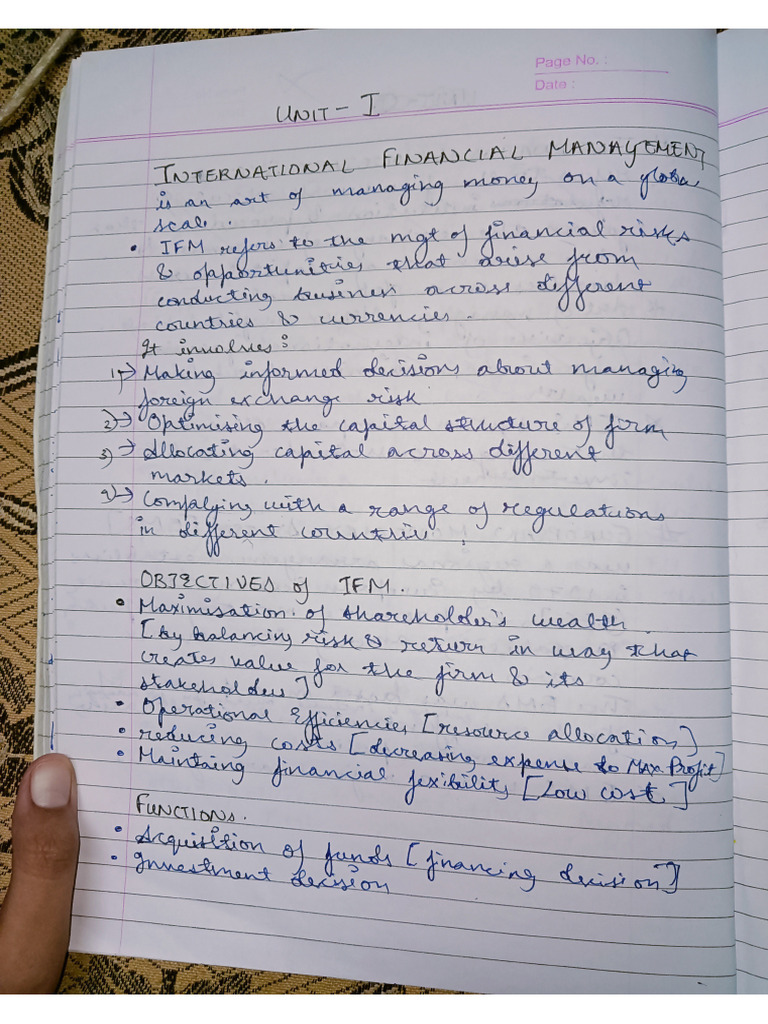 Page No. :
Date :
UNIT - I
INTERNATIONAL FINANCIAL MANAGEMENT
is an art of managing money on a global
scale.
• IFM refers to the mgt of financial risks
& opportunities that arise from
conducting business across different
countries & currencies.
It involves:
1) → Making informed decisions about managing
foreign exchange risk.
2) → Optimising the capital structure of firm
3) → Allocating capital across different
markets.
4) → Complying with a range of regulations
in different countries.
OBJECTIVES of IFM.
• Maximisation of shareholder's wealth
[by balancing risk & return in way that
creates value for the firm & its
stakeholders]
• Operational Efficiencies [resource allocation]
• reducing costs [decreasing expense to Max. Profit]
• Maintaing financial fexibility [Low cost]
FUNCTIONS.
• Acquisition of funds [financing decision]
• Investment decision